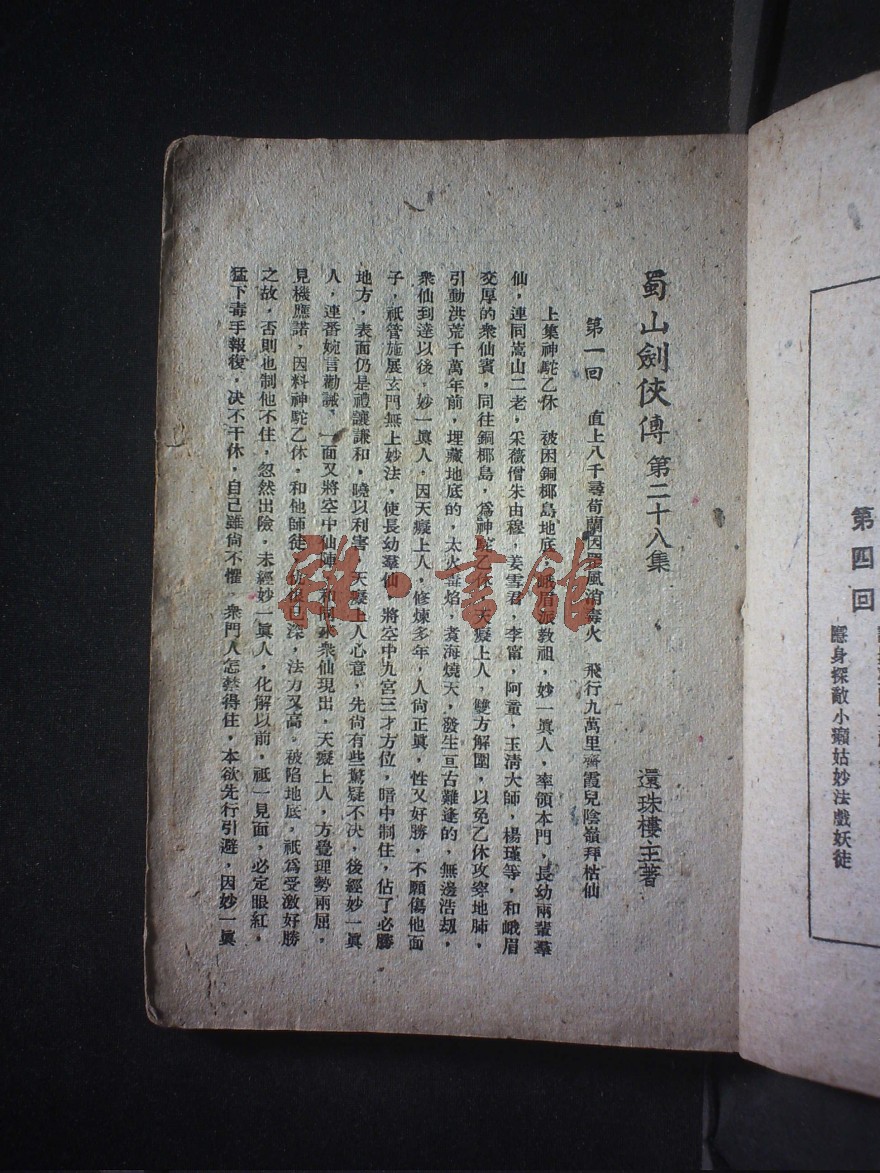 蜀山劍俠傳 第二十八集
還珠樓主著
第一回 直上八千尋荀蘭因罡風消毒火 飛行九萬里齊霞兒陰嶺拜枯仙
上集神駝乙休 被困銅椰島地底,峨眉派教祖,妙一眞人,率領本門,長幼兩輩羣
仙,連同嵩山二老,采薇僧朱由穆,姜雪君,李甯,阿童,玉清大師,楊瑾等,和峨眉
交厚的衆仙賓,同往銅椰島,爲神駝乙休 天癡上人,雙方解圍,以免乙休攻穿地肺,
引動洪荒千萬年前,埋藏地底的,太火毒焰,煑海燒天,發生亘古難逢的,無邊浩刼,
衆仙到達以後,妙一眞人,因天癡上人,修煉多年,人尚正眞,性又好勝,不願傷他面
子,祇管施展玄門無上妙法,使長幼羣仙 將空中九宮三才方位,暗中制住,佔了必勝
地方,表面仍是禮讓謙和,曉以利害 天癡上人心意,先尚有些驚疑不決,後經妙一眞
人,連番婉言勸誡,一面又將空中仙陣,和衆仙現出,天癡上人,方覺理勢兩屈,
見機應諾,因料神駝乙休,和他師徒,仇恨已深,法力又高,被陷地底,祇爲受激好勝
之故,否則也制他不住,忽然出險,未經妙一眞人,化解以前,祇一見面,必定眼紅,
猛下毒手報復,決不干休,自己雖尚不懼,衆門人怎禁得住,本欲先行引避,因妙一眞
第四回
隱身探敵小癩姑妙法戲妖徒
雜·書館